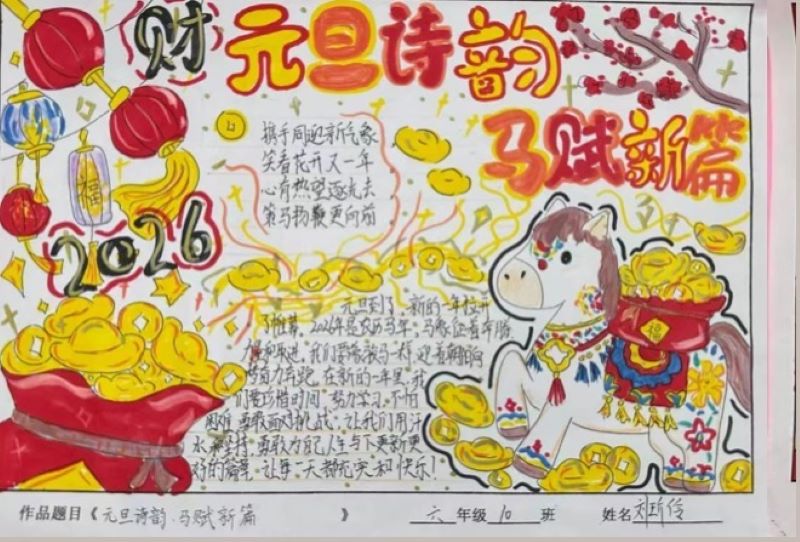 财
元旦诗韵
马赋新篇
携手同迎新气象
笑看花开又一年
心有热望逐光去
策马扬鞭更向前
福
2026
福
元旦到了 新的一年拉开
了帷幕,2026年是农历马年,马象征着奔腾
我们要像骏马一样,迎着朝阳
奋力奔跑,在新的一年里,我
们要珍惜时间 努力学习,不怕
困难 勇敢面对挑战,让我们用汗
水和坚持,勇敢为自己人生写下更新更
好的篇章,让每一天都充实和快乐!
作品题目《元旦诗韵、马赋新篇 》 六 年级 10 班 姓名